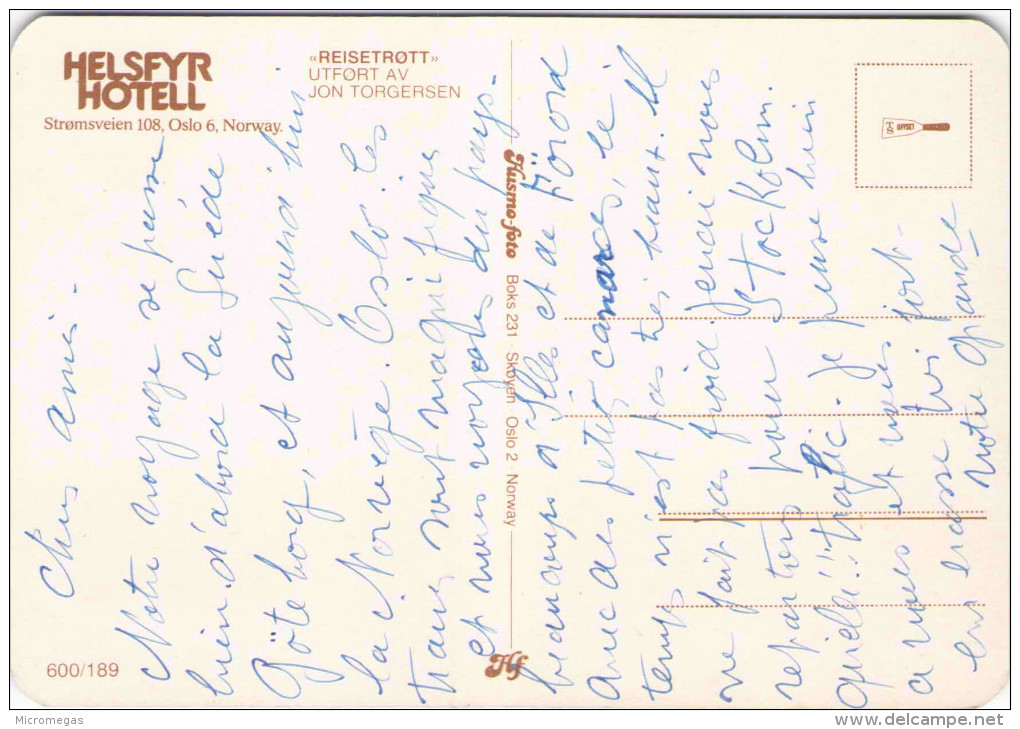 HELSFYR
HOTELL
Strømsveien 108, Oslo 6, Norway.
«REISETRØTT»
UTFØRT AV
JON TORGERSEN
Husmo-foto Boks 231 · Skøyen · Oslo 2 · Norway
TS OFFSET
600/189
Hf
Chers amis -
Notre voyage se passe
bien. d'abord la Suède
Göteborg, et aujourd'hui
la Norvège. Oslo. les
sont magnifiques
et nous voyons du pays -
beaucoup d'Iles et de Fjord
avec des petites, le
temps n'est pas très beau. Il
ne fait pas froid. demain nous
repartons pour Stockolm.
quelle!! trafic - Je pense bien
a vous et vous fort -
en
votre grande
Micromegas
www.delcampe.net